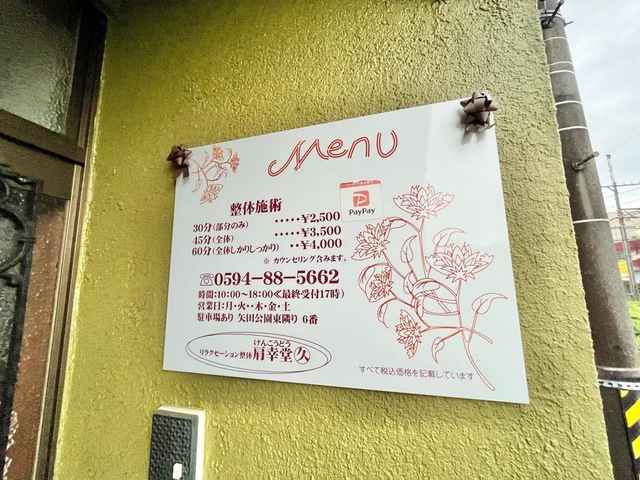 Menu
整体施術
30分(部分のみ) ‥‥‥¥2,500
45分(全体) ‥‥‥¥3,500
60分(全体しかりしっかり) ‥¥4,000
※ カウンセリング含みます。
PayPay
☏0594-88-5662
時間:10:00~18:00≪最終受付17時)
営業日:月・火・・木・金・土
駐車場あり 矢田公園東隣り 6番
けんこうどう
リラクセーション整体 肩幸堂 久
すべて税込価格を記載しています